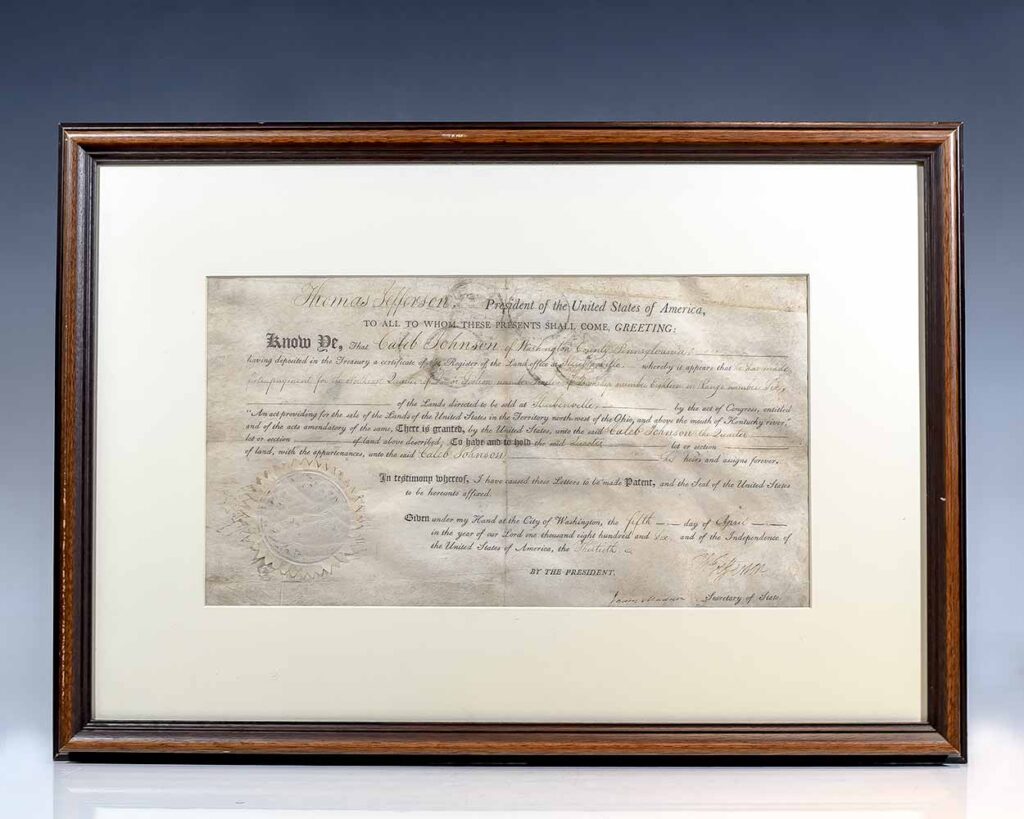 Thomas Jefferson, President of the United States of America,
TO ALL TO WHOM THESE PRESENTS SHALL COME, GREETING:
Know Ye, That Caleb Johnson of Washington County Pennsylvania
having deposited in the Treasury a certificate of the Register of the Land office at Steubenville whereby it appears that he has made
full payment for the Quarter of Section number of Township number Eighteen in Range number Six,
of the Lands directed to be sold at Steubenville, by the act of Congress, entitled
"An act providing for the sale of the Lands of the United States in the Territory north west of the Ohio, and above the mouth of Kentucky river,"
and of the acts amendatory of the same, There is granted, by the United States, unto the said Caleb Johnson the Quarter
lot or section of land above described, To have and to hold the said Quarter lot or section
of land, with the appurtenances, unto the said Caleb Johnson his heirs and assigns forever.
In testimony whereof, I have caused these Letters to be made Patent, and the Seal of the United States
to be hereunto affixed.
Given under my Hand at the City of Washington, the fifth day of April
in the year of our Lord one thousand eight hundred and six and of the Independence of
the United States of America, the Thirtieth.
Th: Jefferson
BY THE PRESIDENT,
James Madison Secretary of State